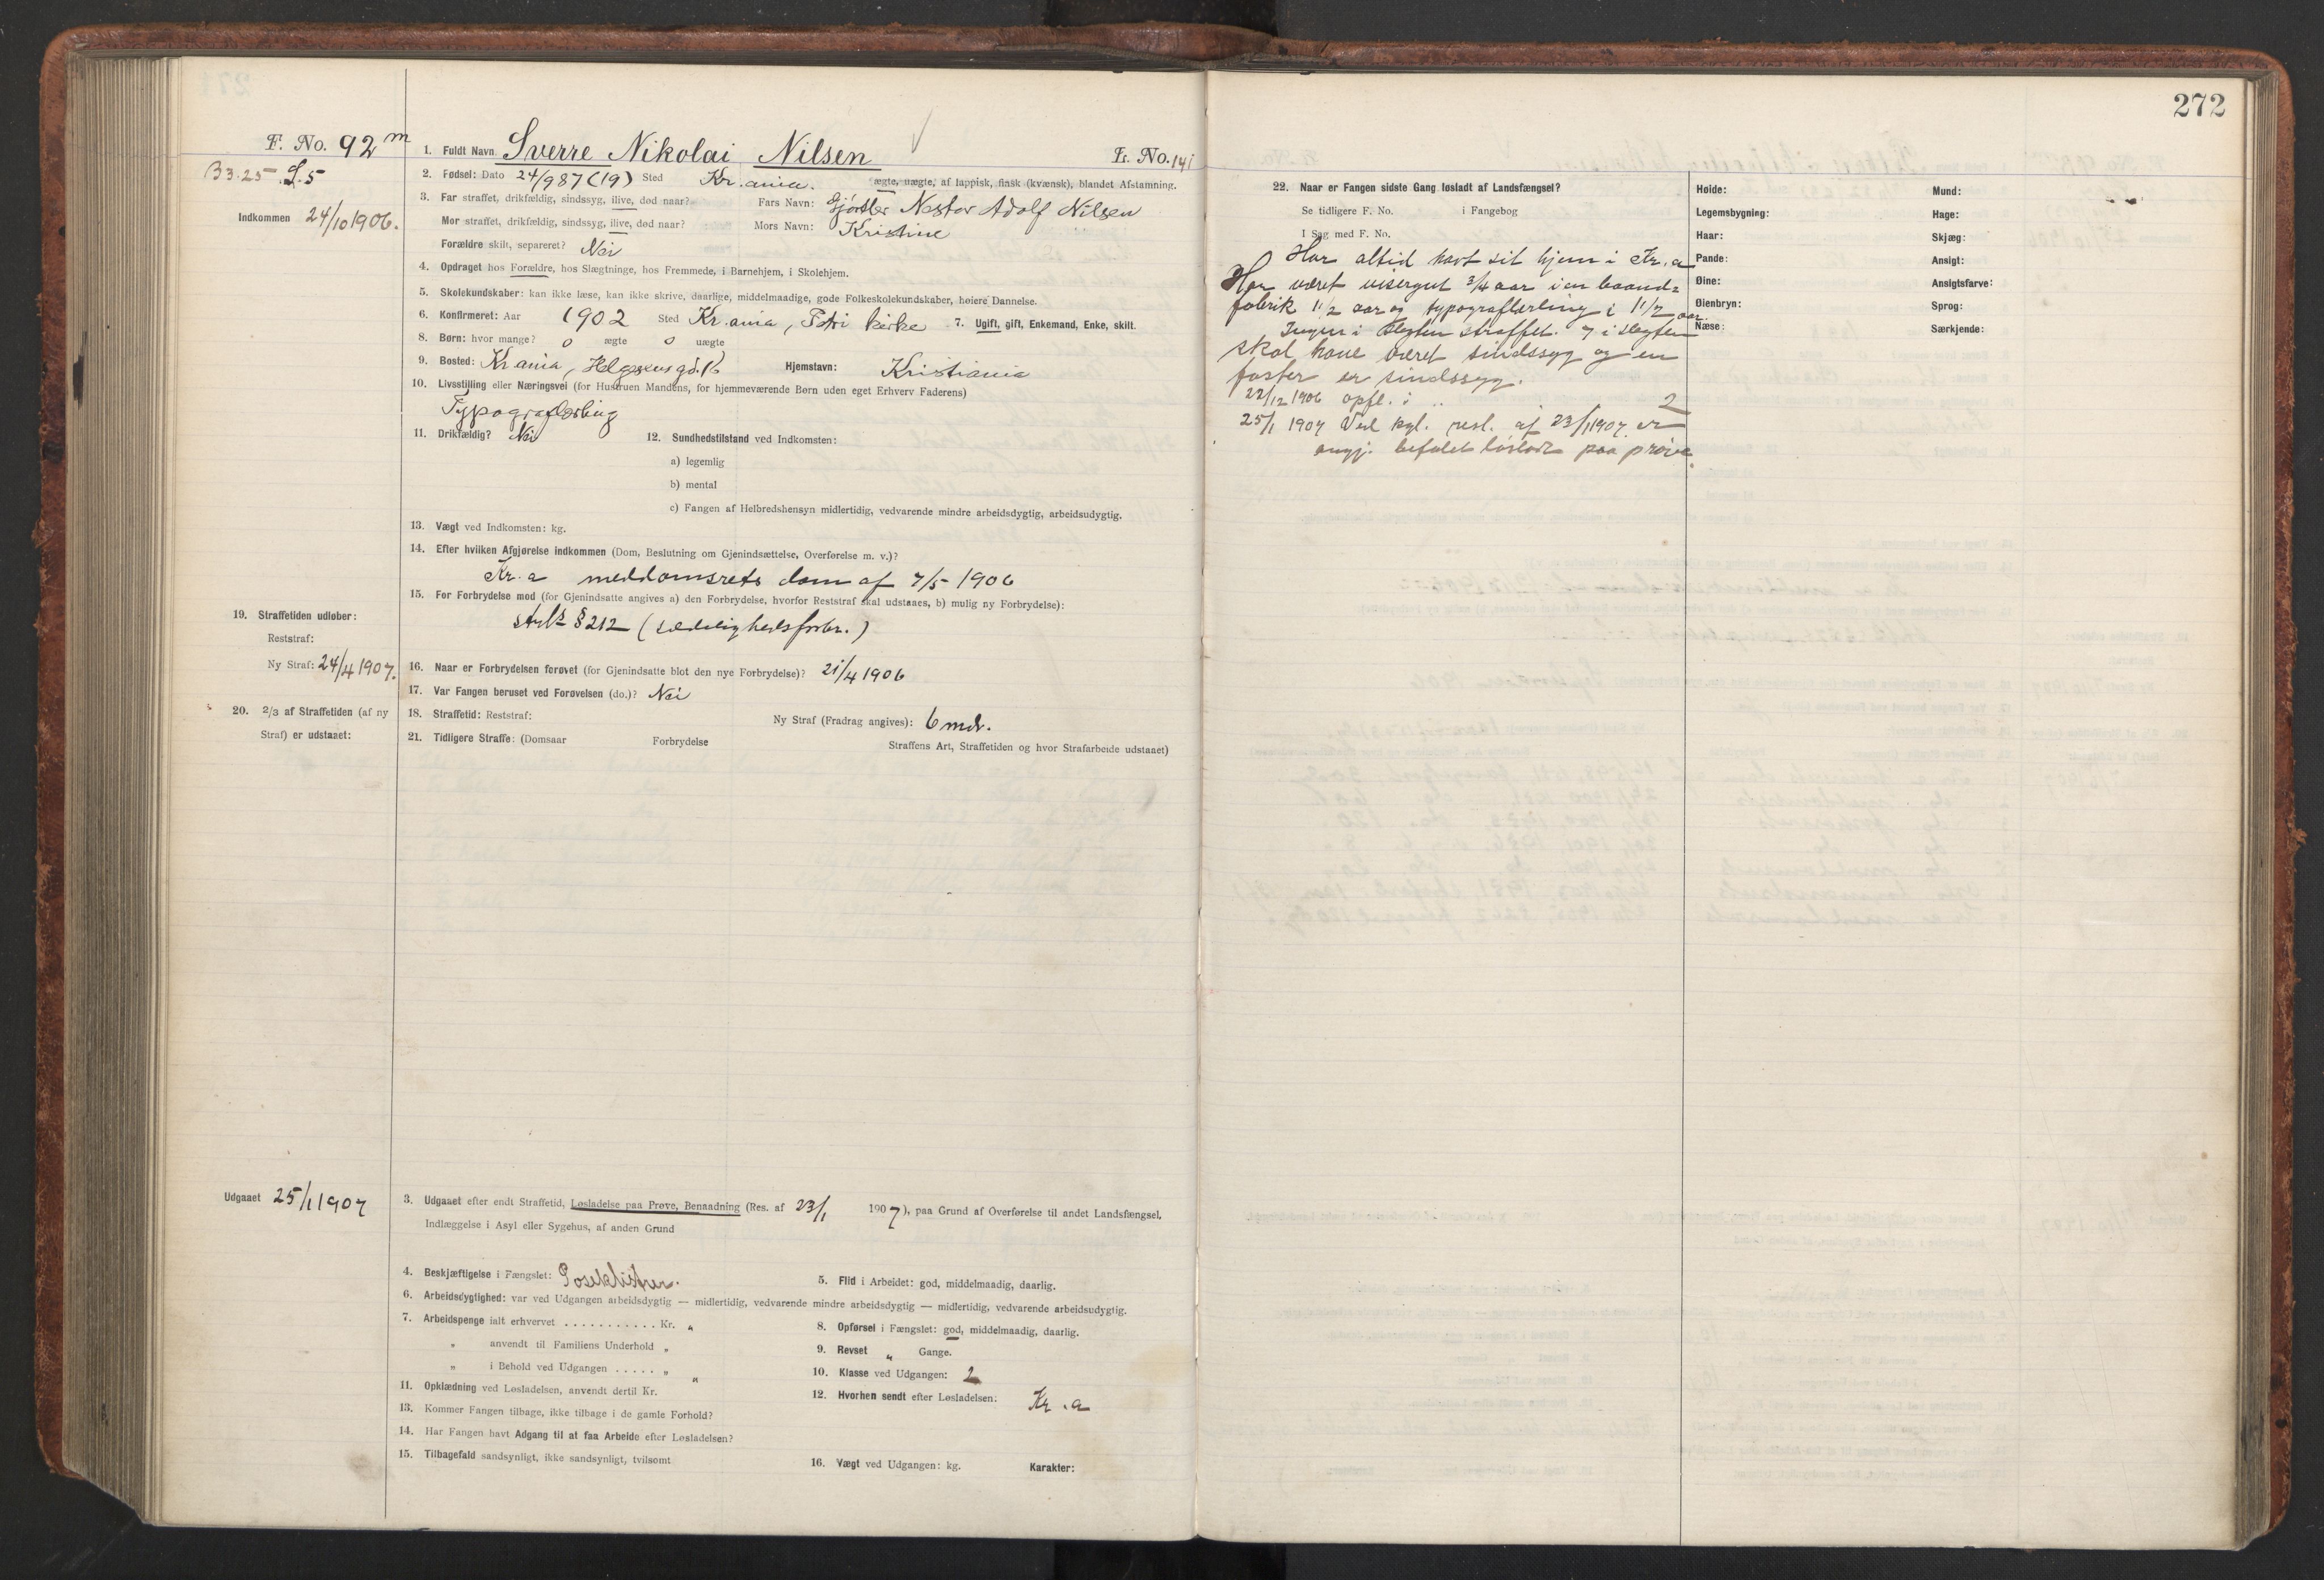 272
F. No. 92 m
33.25 L.5
Indkommen 24/10 1906.
1. Fuldt Navn Sverre Nikolai Nilsen L. No. 141
2. Fødsel: Dato 24/9 87 (19) Sted Kr.ania. ægte, uægte, af lappisk, finsk (kvænsk), blandet Afstamning.
3. Far straffet, drikfældig, sindssyg, ilive, død naar? Fars Navn: Gjørtler Nestor Adolf Nilsen
Mor straffet, drikfældig, sindssyg, ilive, død naar? Mors Navn: Kristine
Forældre skilt, separeret? Nei
4. Opdraget hos Forældre, hos Slægtninge, hos Fremmede, i Barnehjem, i Skolehjem.
5. Skolekundskaber: kan ikke læse, kan ikke skrive, daarlige, middelmaadige, gode Folkeskolekundskaber, høiere Dannelse.
6. Konfirmeret: Aar 1902 Sted Kr.ania, Petri kirke 7. Ugift, gift, Enkemand, Enke, skilt.
8. Børn: hvor mange? 0 ægte 0 uægte
9. Bosted: Kr.ania, Hjemstavn: Kristiania
10. Livsstilling eller Næringsvei (for Hustruen Mandens, for hjemmeværende Børn uden eget Erhverv Faderens)
Typograflærling
11. Drikfældig? Nei 12. Sundhedstilstand ved Indkomsten:
a) legemlig
b) mental
c) Fangen af Helbredshensyn midlertidig, vedvarende mindre arbeidsdygtig, arbeidsudygtig.
13. Vægt ved Indkomsten: kg.
14. Efter hvilken Afgjørelse indkommen (Dom, Beslutning om Gjenindsættelse, Overførelse m. v.)?
Kr.a meddomsrets dom af 7/5 1906
15. For Forbrydelse mod (for Gjenindsatte angives a) den Forbrydelse, hvorfor Reststraf skal udstaaes, b) mulig ny Forbrydelse):
strl. § 212 (sædelighedsforbr.)
19. Straffetiden udløber:
Reststraf:
Ny Straf: 24/4 1907.
16. Naar er Forbrydelsen forøvet (for Gjenindsatte blot den nye Forbrydelse)? 21/4 1906
17. Var Fangen beruset ved Forøvelsen (do.)? Nei
20. 2/3 af Straffetiden (af ny
Straf) er udstaaet:
18. Straffetid: Reststraf: Ny Straf (Fradrag angives): 6 mdr.
21. Tidligere Straffe: (Domsaar Forbrydelse Straffens Art, Straffetiden og hvor Strafarbeide udstaaet)
Udgaaet 25/1 1907
3. Udgaaet efter endt Straffetid, Løsladelse paa Prøve, Benaadning (Res. af 23/1 1907), paa Grund af Overførelse til andet Landsfængsel,
Indlæggelse i Asyl eller Sygehus, af anden Grund
4. Beskjæftigelse i Fængslet: Poseklistrer. 5. Flid i Arbeidet: god, middelmaadig, daarlig.
6. Arbeidsdygtighed: var ved Udgangen arbeidsdygtig — midlertidig, vedvarende mindre arbeidsdygtig — midlertidig, vedvarende arbeidsudygtig.
7. Arbeidspenge ialt erhvervet . . . . . . . . . . . Kr. „ 8. Opførsel i Fængslet: god, middelmaadig, daarlig.
„ anvendt til Familiens Underhold „ 9. Revset „ Gange.
„ i Behold ved Udgangen . . . . . „ 10. Klasse ved Udgangen: 2
11. Opklædning ved Løsladelsen, anvendt dertil Kr. „ 12. Hvorhen sendt efter Løsladelsen: Kr.a
13. Kommer Fangen tilbage, ikke tilbage i de gamle Forhold?
14. Har Fangen havt Adgang til at faa Arbeide efter Løsladelsen?
15. Tilbagefald sandsynligt, ikke sandsynligt, tvilsomt 16. Vægt ved Udgangen: kg. Karakter:
22. Naar er Fangen sidste Gang løsladt af Landsfængsel?
Se tidligere F. No. i Fangebog
I Sag med F. No.
Har altid havt sit hjem i Kr.a
Har været visergut 3/4 aar i en baand-
fabrik 1 1/2 aar og typograflærling i 1 1/2 aar.
Ingen i slegten straffet. i slegten
skal have været sindssyg og en
faster er sindssyg.
22/12 1906 opfl. i .. 2
25/1 1907 Ved kgl. resl. af 23/1 1907 er
angj. befalet løsladt paa prøve.
Høide: Mund:
Legemsbygning: Hage:
Haar: Skjæg:
Pande: Ansigt:
Øine: Ansigtsfarve:
Øienbryn: Sprog:
Næse: Særkjende: